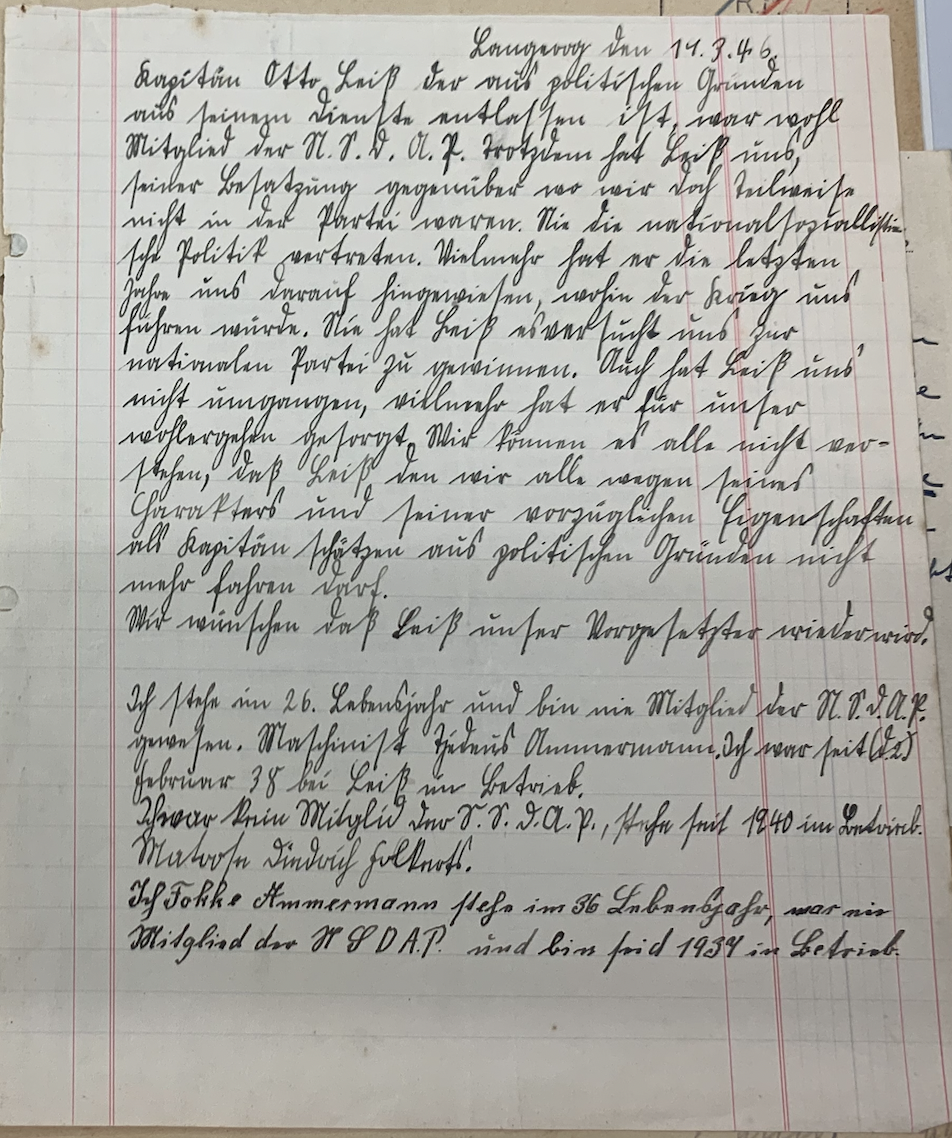 Langeoog den 14.3.46.
Kapitän Otto Leiß der aus politischen Gründen
aus seinem Dienste entlassen ist, war wohl
Mitglied der N.S.D.A.P. Trotzdem hat Leiß uns,
seiner Besatzung gegenüber wo wir doch Teilweise
nicht in der Partei waren. Nie die nationalsozialisti-
sche Politik vertreten. Vielmehr hat er die letzten
Jahre uns darauf hingewiesen, wohin der Krieg uns
führen würde. Nie hat Leiß es versucht uns zur
nationalen Partei zu gewinnen. Auch hat Leiß uns
nicht umgangen, vielmehr hat er für unser
wohlergehen gesorgt. Wir können es alle nicht ver-
stehen, daß Leiß den wir alle wegen seines
Charakters und seiner vorzüglichen Eigenschaften
als Kapitän schätzen aus politischen Gründen nicht
mehr fahren darf.
Wir wünschen daß Leiß unser Vorgesetzter wieder wird.
Ich stehe im 26. Lebensjahr und bin nie Mitglied der N.S.d.A.P.
gewesen. Maschinist Tjedeus Ammermann. Ich war seit
Februar 38 bei Leiß im Betrieb.
Ich war kein Mitglid der S.S.d.A.P., stehe seit 1940 im Betrieb.
Matrose Diedrich Folkerts.
Ich Fokke Ammermann stehe im 36 Lebensjahr, war nie
Mitglied der N S D A.P. und bin seid 1937 in Betrieb.